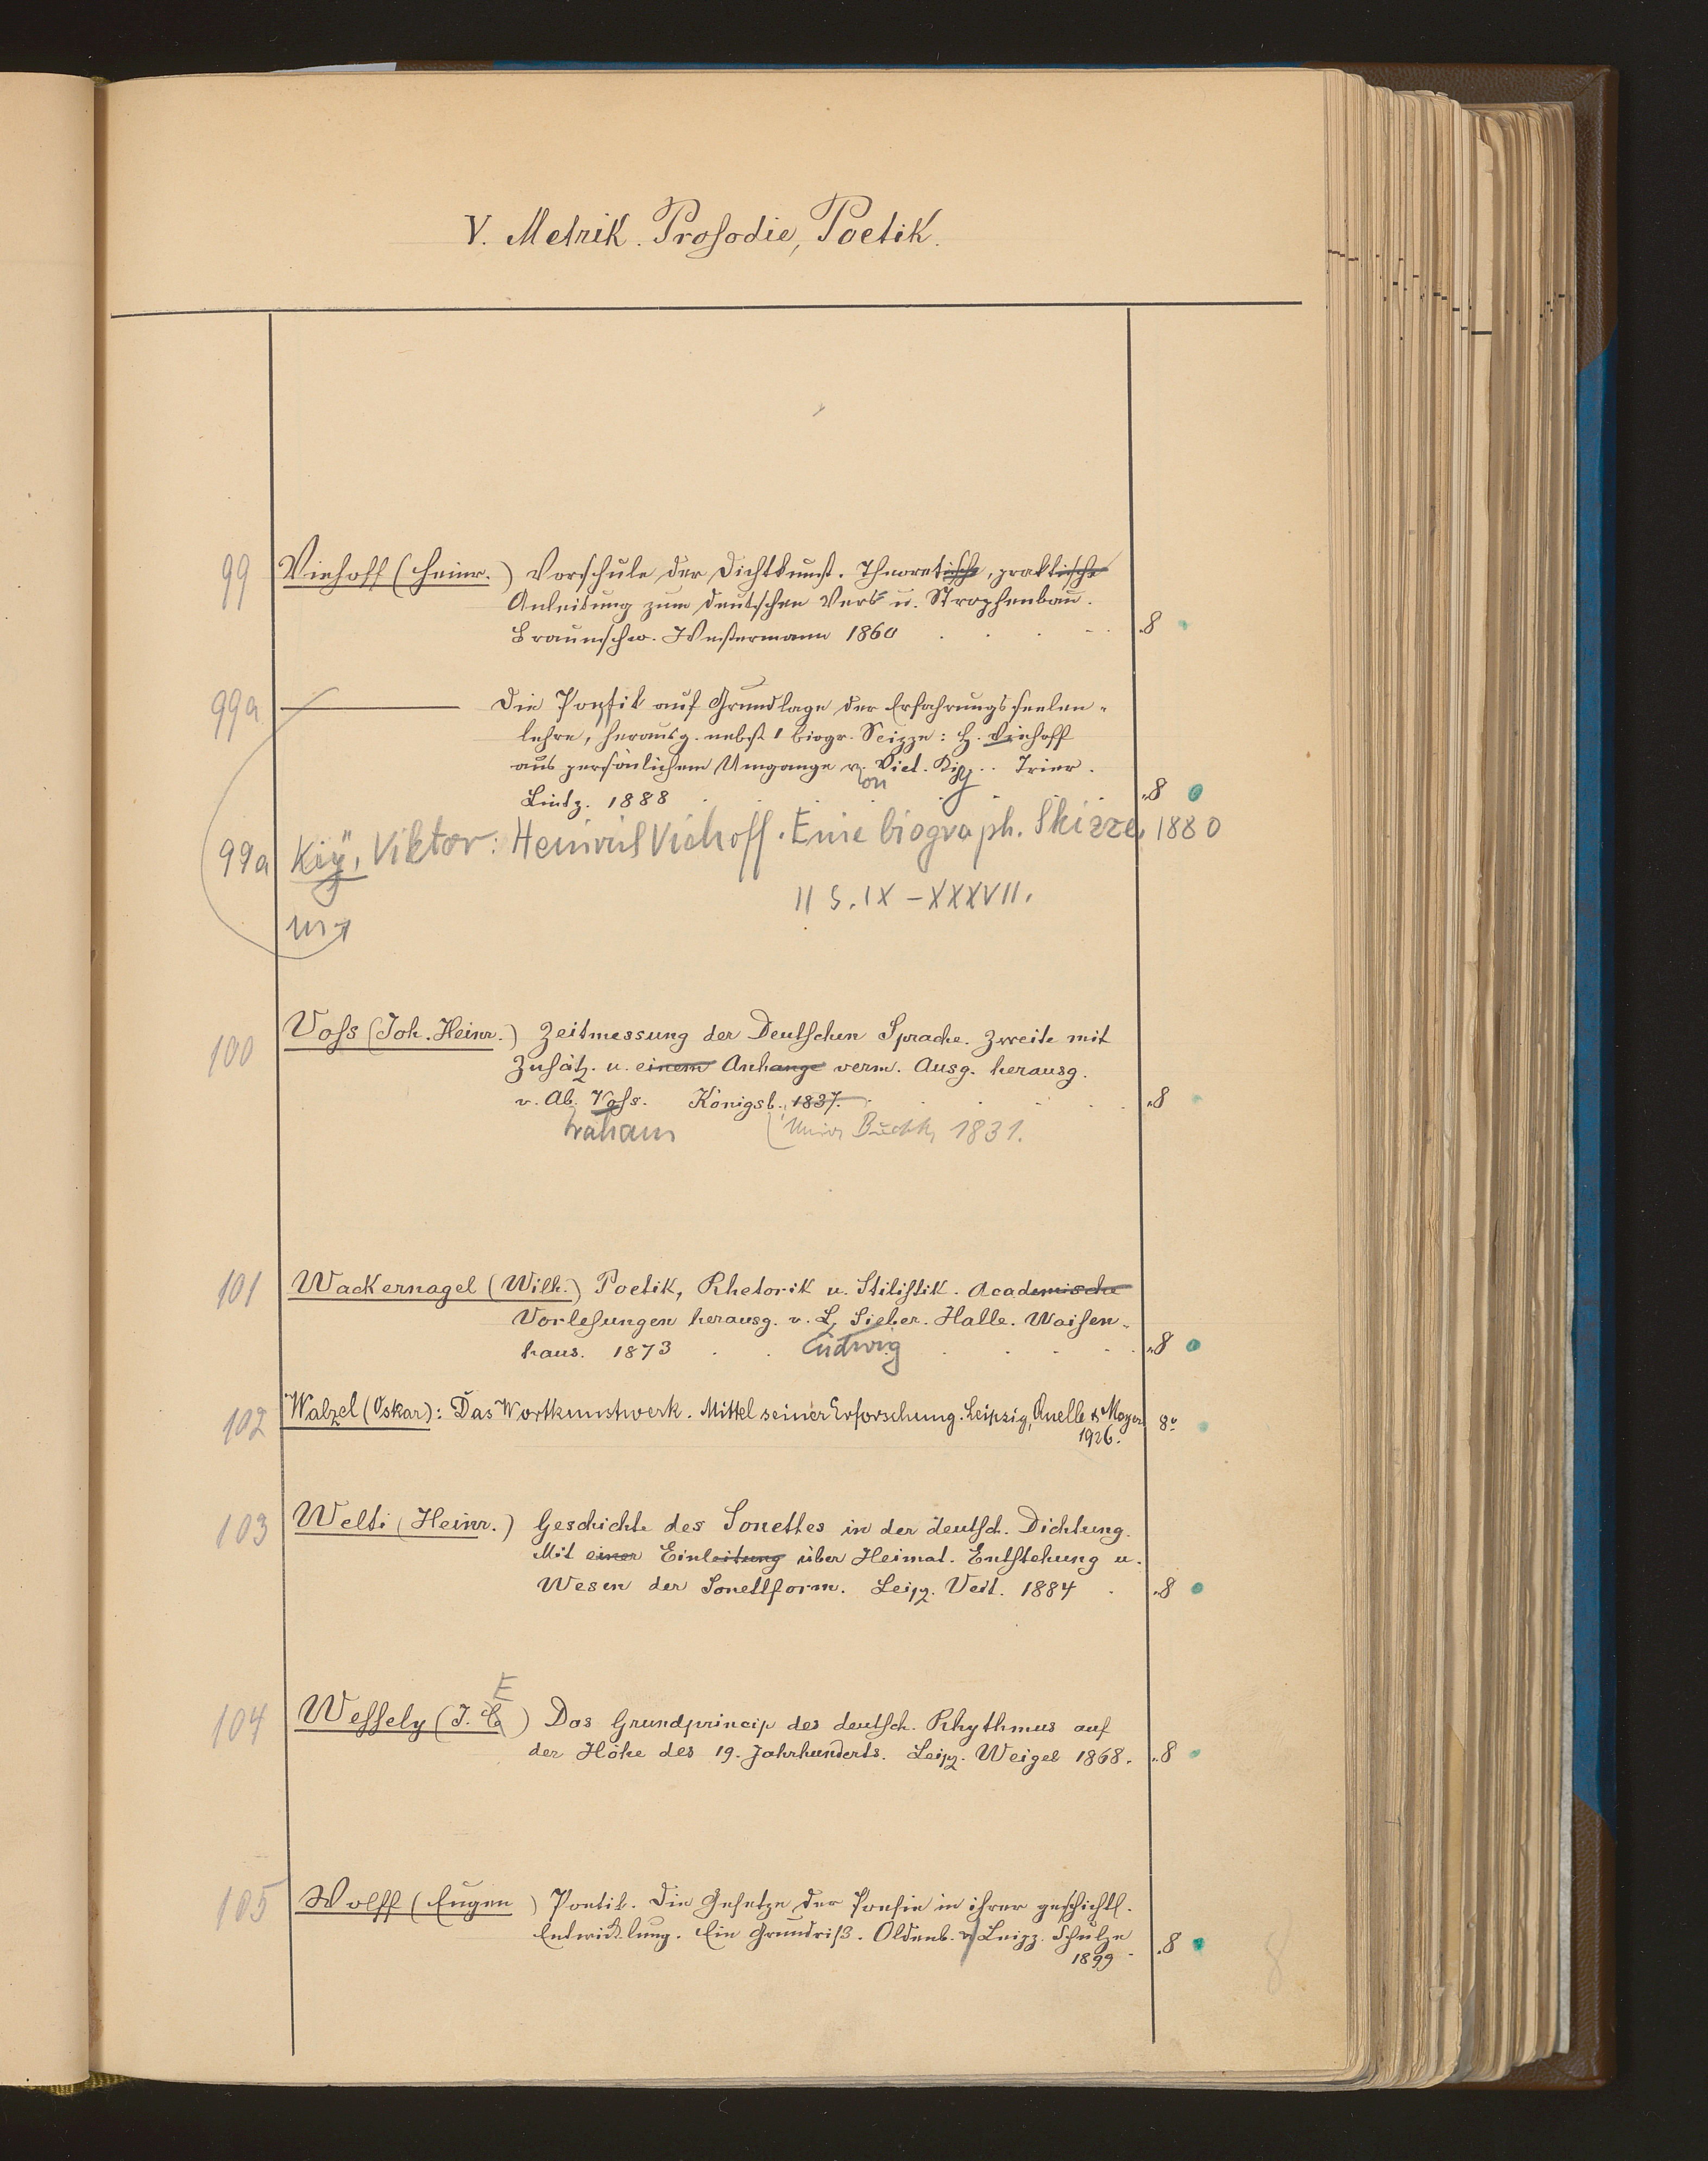 V. Metrik. Prosodie, Poetik.
99 Viehoff (Heinr.) Vorschule der Dichtkunst. Theoretische, praktische
Anleitung zum deutschen Vers u. Strophenbau.
Braunschw. Westermann 1860 8
99a Die Poetik auf Grundlage der Erfahrungsseelen-
lehre, herausg. nebst 1 biogr. Scizze: H. Viehoff
aus persönlichem Umgange v. Vict. Kiy. Trier.
on
Lintz. 1888 8
99a Kiÿ, Viktor: Heinrich Viehoff. Eine biograph. Skizze, 1880
II S. IX-XXXVII.
100 Voss (Joh. Heinr.) Zeitmessung der Deutschen Sprache. Zweite mit
Zusätz. u. einem Anhange verm. Ausg. herausg.
v. Ab. Voss. Königsb. 1837. 8
raham Univ Buchh 1831.
101 Wackernagel (Wilh.) Poetik, Rhetorik u. Stilistik. Academische
Vorlesungen herausg. v. L. Sieber. Halle. Waisen-
haus. 1873 Ludwig 8
102 Walzel (Oskar): Das Wortkunstwerk. Mittel seiner Erforschung. Leipzig, Quelle & Meyer 8°
1926.
103 Welti (Heinr.) Geschichte des Sonettes in der deutsch. Dichtung.
Mit einer Einleitung über Heimat. Entstehung u.
Wesen der Sonettform. Leipz. Veit. 1884 8
E
104 Wessely (J. E) Das Grundprincip des deutsch. Rhythmus auf
der Höhe des 19. Jahrhunderts. Leipz. Weigel 1868. 8
105 Wolff (Eugen) Poetik. Die Gesetze der Poesie in ihrer geschichtl.
Entwicklung. Ein Grundriß. Oldenb. u Leipz. Schulze 8
1899
8